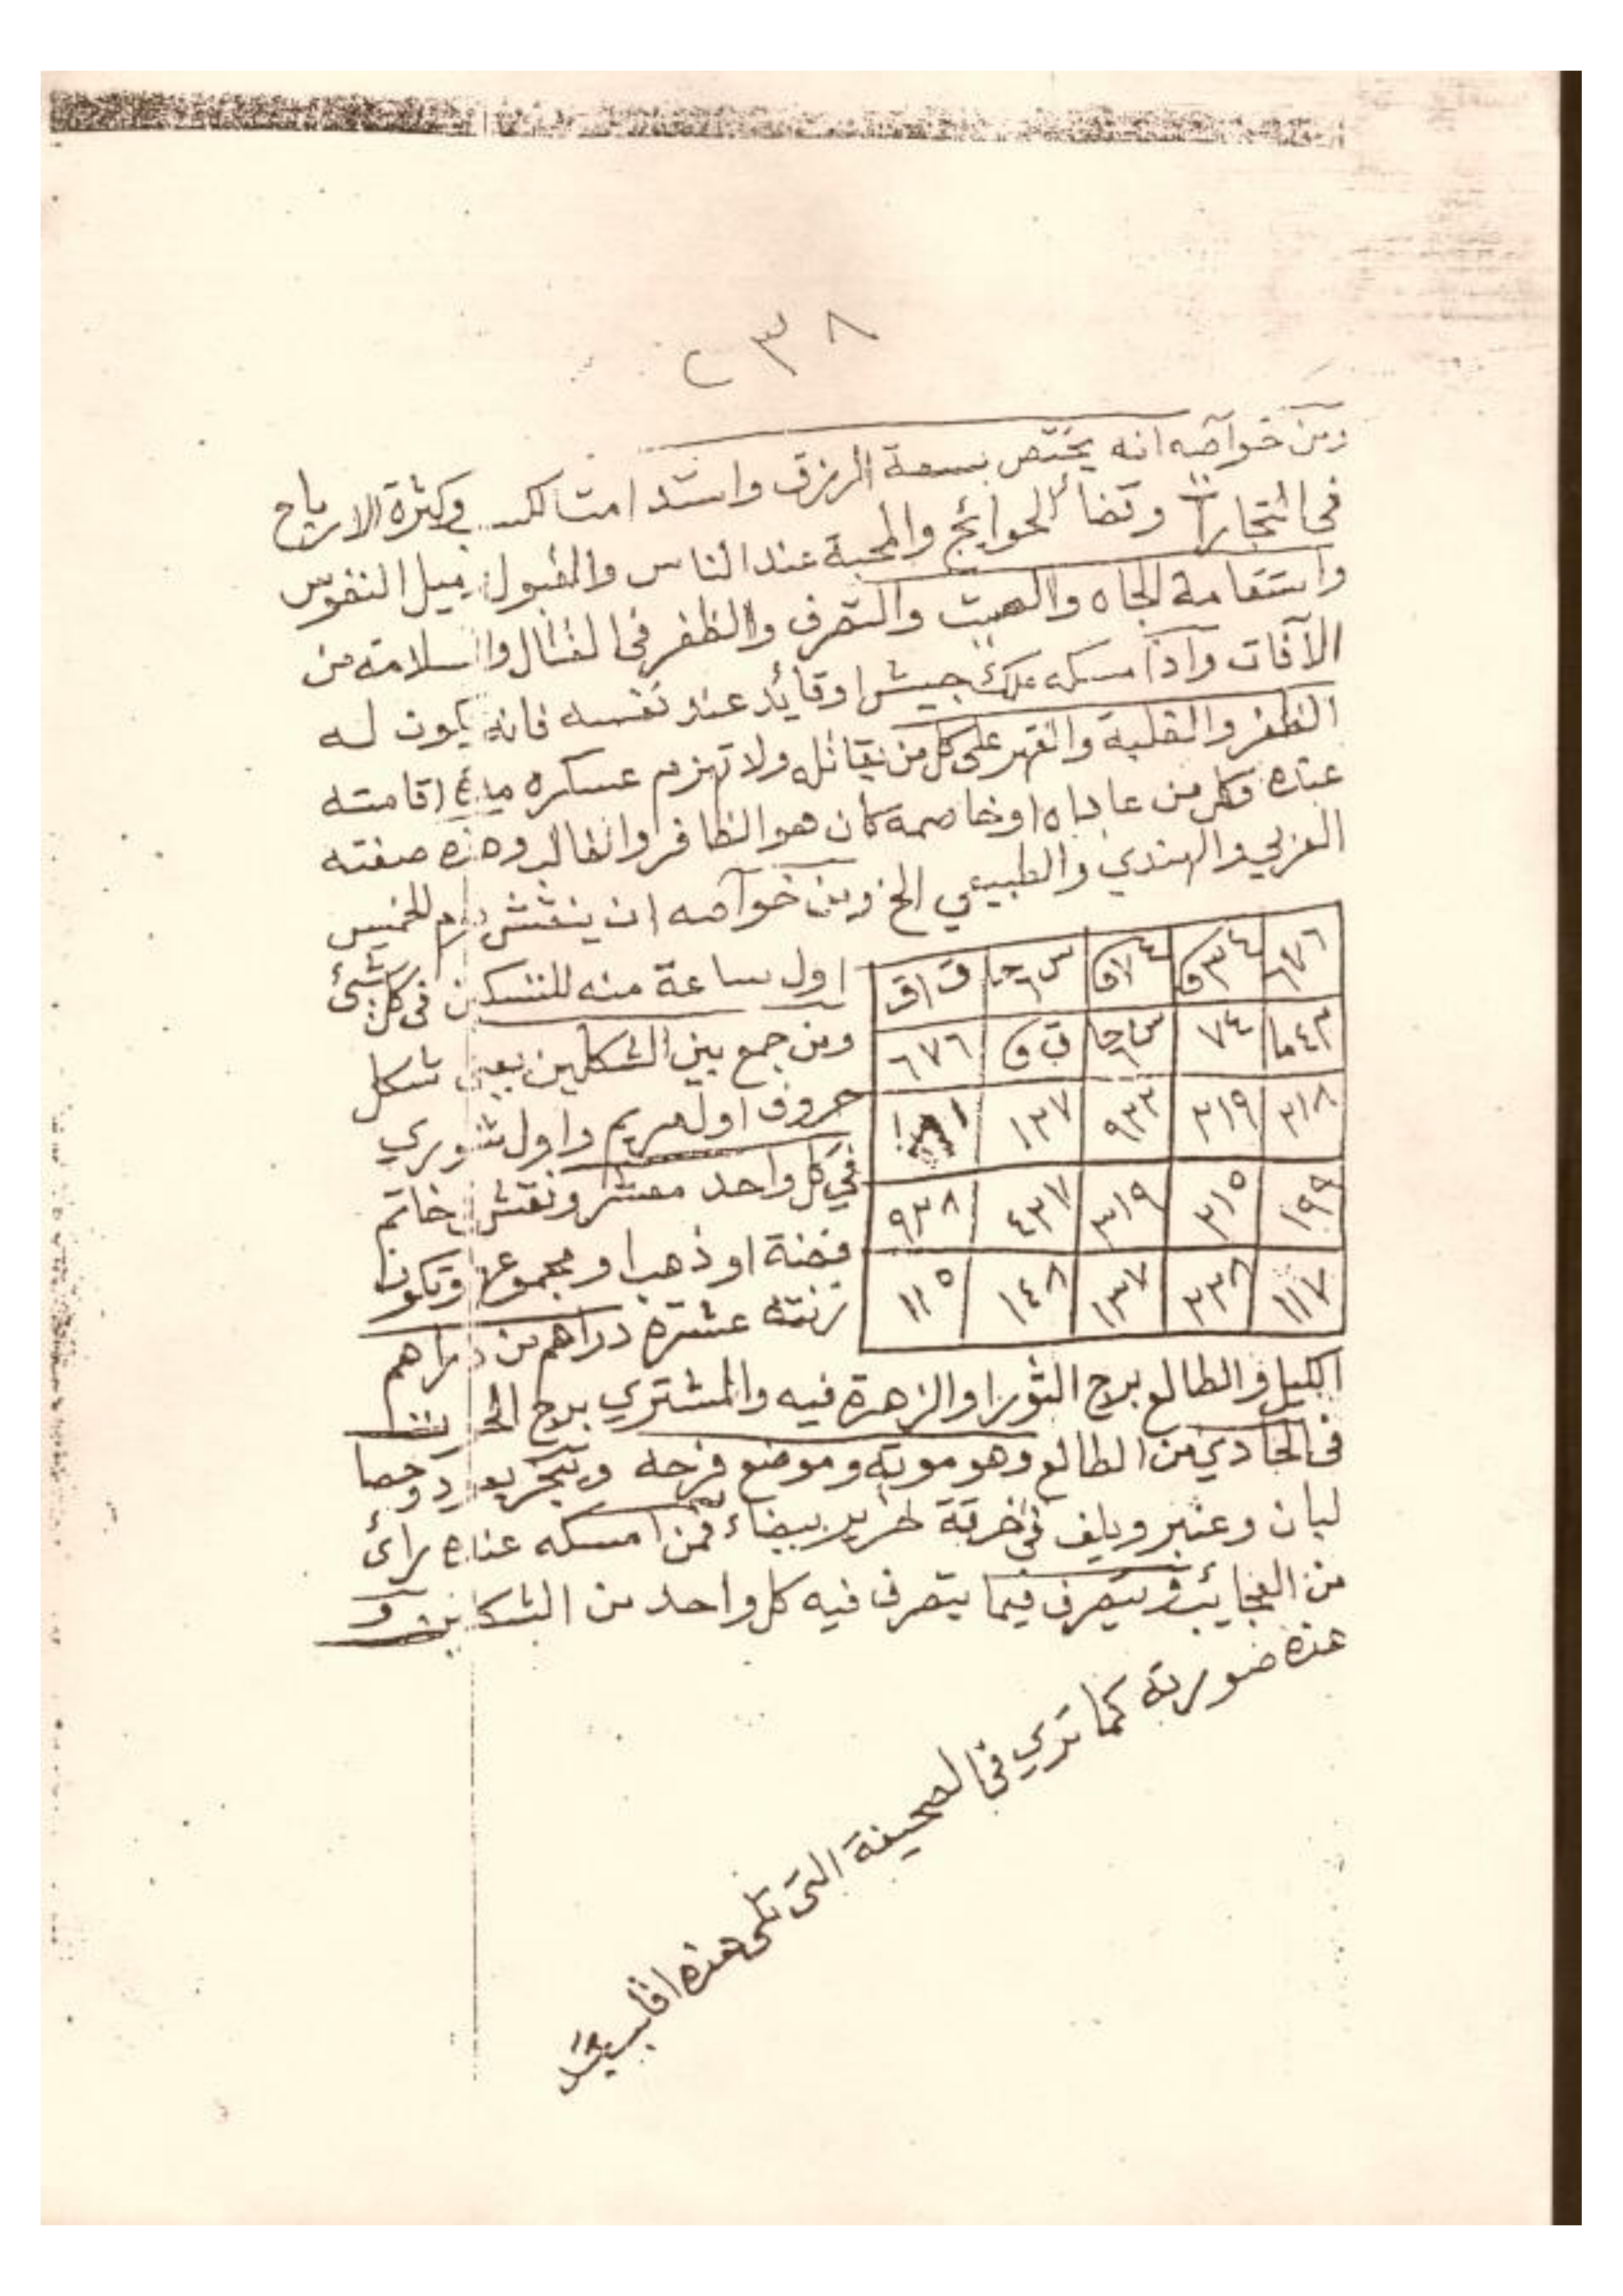 ٢٣٨
ومن خواصه انه يختص بسعة الرزق واستدامت الكسب وكثرة الارباح
فى التجارات وقضاء الحوائج والمحبة عند الناس والقبول وميل النفوس
واستقامة الجاه والصيت والتصرف والظفر فى القتال والسلامة من
الآفات واذا مسكه ملك جيش او قايد عند نفسه فانه يكون له
الظفر والغلبة والقهر على كل من يقاتله ولا تهزم عسكره مدة اقامته
عنده وكل من عاداه او خاصمه كان هو الظافر والغالب وهذه صفته
العربي والهندي والطبيعي الخ ومن خواصه ان ينقش يوم الخميس
اول ساعة منه للتسكين فى كل شئ
ومن جمع بين الشكلين يعنى شكل
حروف اول مريم واول شورى
فى كل واحد معشر ونقش خاتم
فضة او ذهب او مجموعهم وتكون
زنته عشرة دراهم من دراهم
٦٧٦
٧٤
٦٧٦
٣١٨ ٣١٩ ٩٣٣ ١٣٧
١٩٩ ٣١٥ ٣١٩ ٤٣٧ ٩٣٨
١١٧ ٣٣٨ ١٣٧ ١٤٨ ١١٥
الكيل والطالع برج الثور او الزهرة فيه والمشتري برج الحوت
فى الحادي من الطالع وهو موته وموضع فرحه ويبخر بعود وحصا
لبان وعنبر ويلف فى خرقة حرير بيضاء فمن امسكه عنده رأى
من العجايب ويتصرف فيما يتصرف فيه كل واحد من الشكلين و
هذه صورته كما ترى فى الصحيفة التى تلى هذه